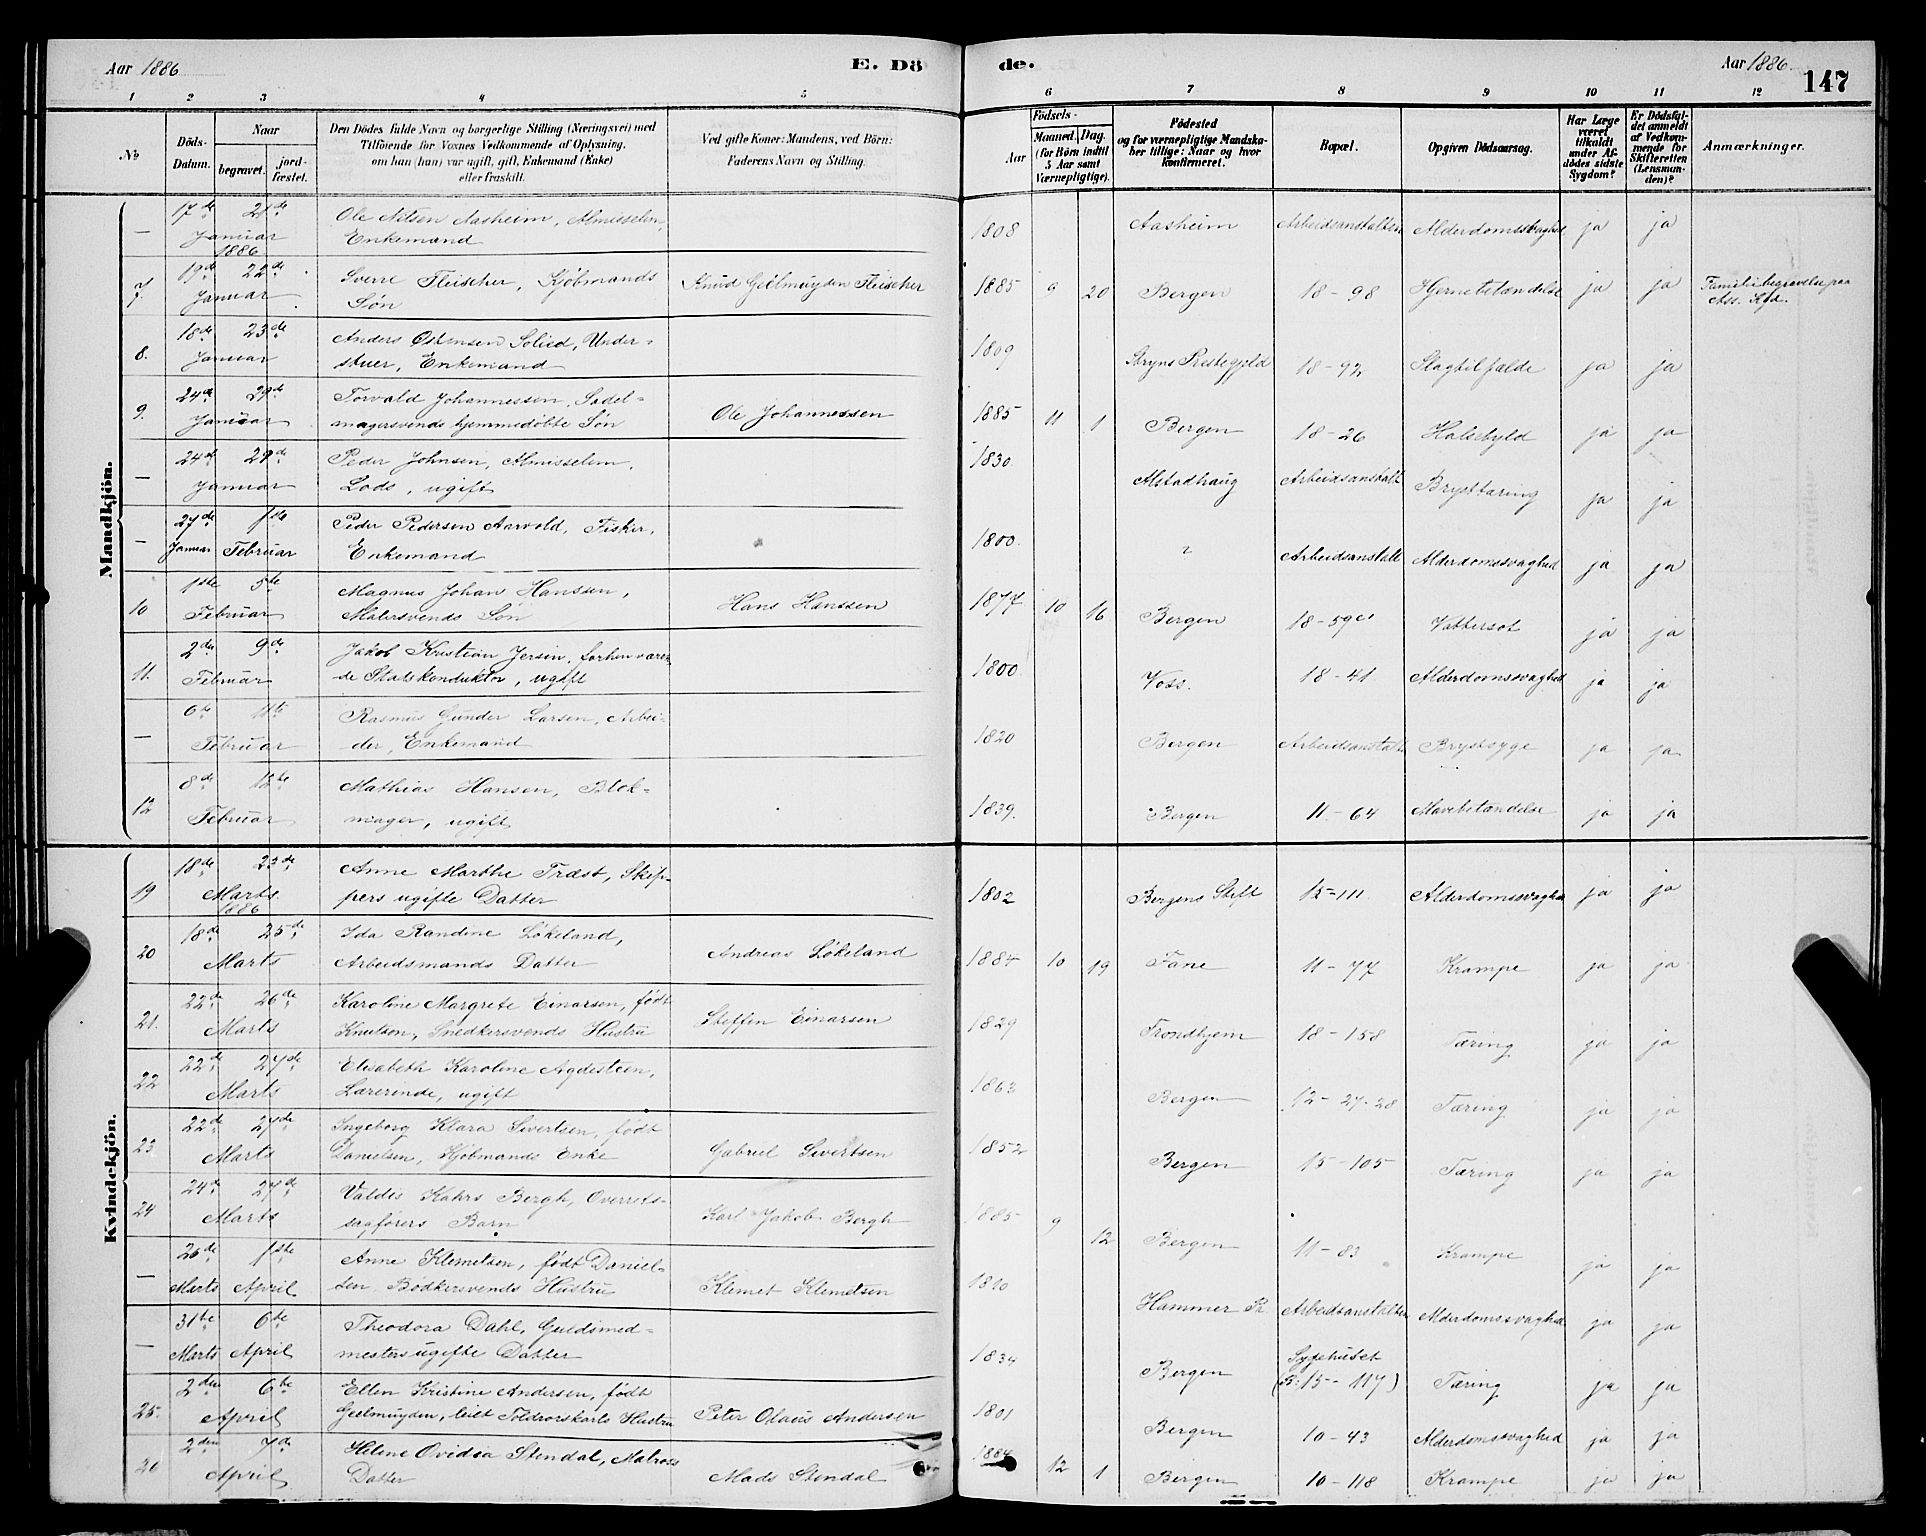 Aar 1886
E. Dö
de.
Aar 1886.
147
1 2 3 4 5 6 7 8 9 10 11 12
No
Döds-Datum.
Naar
begravet.
jord-fæstet.
Den Dödes fulde Navn og borgerlige Stilling (Næringsvei) med
Tilföiende for Voxnes Vedkommende af Oplysning,
om han (hun) var ugift, gift, Enkemand (Enke)
eller fraskilt.
Ved gifte Koner: Mandens, ved Börn:
Faderens Navn og Stilling.
Födsels-
Aar
Maaned.
Dag.
(for Börn indtil
5 Aar samt
Værnepligtige).
Födested
og for værnepligtige Mandska-
ber tillige: Naar og hvor
konfirmeret.
Bopæl.
Opgiven Dödsaarsag.
Har Læge
været
tilkaldt
under Af-
dödes sidste
Sygdom?
Er Dödsfal-
det anmeldt
af Vedkom-
mende for
Skifteretten
(Lensman-
den)?
Anmærkninger.
Mandkjön.
— 17de Januar 1886 21de Ole Nilsen Aasheim, Almisselem, Enkemand 1808 Aasheim Arbeidsanstalten Alderdomssvaghed ja ja
7. 19de Januar 22de Sverre Fleischer, Kjöbmands Sön Knud Geelmuyden Fleischer 1885 9 20 Bergen 18-98 Hjernebetændelse ja ja Familiebegravelse paa Ass. Kgd.
8. 18de Januar 23de Anders Solied, Enkemand 1809 Stryns Prestegjeld 18-92 Slagtilfælde ja ja
9. 24de Januar 29de Torvald Johannessen, Sadel-magersvends hjemmedöbte Sön Ole Johannessen 1885 11 1 Bergen 18-26 Halsebyld ja ja
— 24de Januar 28de Peder Johnsen, Almisselem, Lods, ugift 1830. Alstadhaug Arbeidsanstalt Brysttæring ja ja
— 27de Januar 1ste Februar Peder Pedersen Aarvold, Fisker, Enkemand 1800. ? Arbeidsanstalt Alderdomssvaghed ja ja
10 1ste Februar 5te Magnus Johan Hanssen, Malersvends Sön Hans Hanssen 1877 10 16 Bergen 18-59 Vattersot ja ja
11. 2den Februar 9de Jakob Kristian Jersin, forhenværen-de Statskonduktör, ugift 1800. Voss. 18-41 Alderdomssvaghed ja ja
— 6te Februar 11te Rasmus Gunder Larsen, Arbei-der, Enkemand 1820 Bergen Arbeidsanstalt Brystsyge ja ja
12 8de Februar 12te Mathias Hansen, Blok-mager, ugift 1839. Bergen 11-64 Mavebetændelse ja ja
Kvindekjön.
19 18de Marts 1886 23de Anne Marthe Træst, Skip-pers ugifte Datter 1802 Bergens Stift 15-111. Alderdomssvaghed ja ja
20 18de Marts 25de Ida Randine Lökeland, Arbeidsmands Datter Andreas Lökeland 1884 10 19 Fane 11-77 Krampe ja ja
21. 22de Marts 26de Karoline Margrete Einarsen, födt Knutsen, Snedkersvends Hustru Steffen Einarsen 1829 Trondhjem 18-158 Tæring ja ja
22 22de Marts 27de Elisabeth Karoline Agdesteen, Lærerinde, ugift 1863 Bergen 12-27-28 Tæring ja ja
23 22de Marts 27de Ingeborg Klara Sivertsen, födt Danielsen, Kjöbmands Enke Gabriel Sivertsen 1852 Bergen 15-105 Tæring ja ja
24 24de Marts 27de Valdis Kahrs Bergh, Overrets-sagförers Barn Karl Jakob Bergh 1885 9 12 Bergen 11-83 Krampe ja ja
— 26de Marts 1ste April Anne Klemetsen, födt Daniel-sen, Bödkersvends Hustru Klemet Klemetsen 1810 Hammer Pr. Arbeidsanstalten Alderdomssvaghed ja ja
— 31te Marts 6te April Theodora Dahl, Guldsmed-mesters ugifte Datter 1834 Bergen Sygehuset (R. 15-117) Tæring ja ja
25. 2den April 6te Ellen Kristine Andersen, födt Geelmuyden, Toldrorskarls Hustru Peter Olaus Andersen 1801 Bergen 10-43 Alderdomssvaghed ja ja
26 2den April 7de Helene Ovidia Stendal, Matros Datter Mads Stendal 1884 12 1 Bergen 10-118 Krampe ja ja